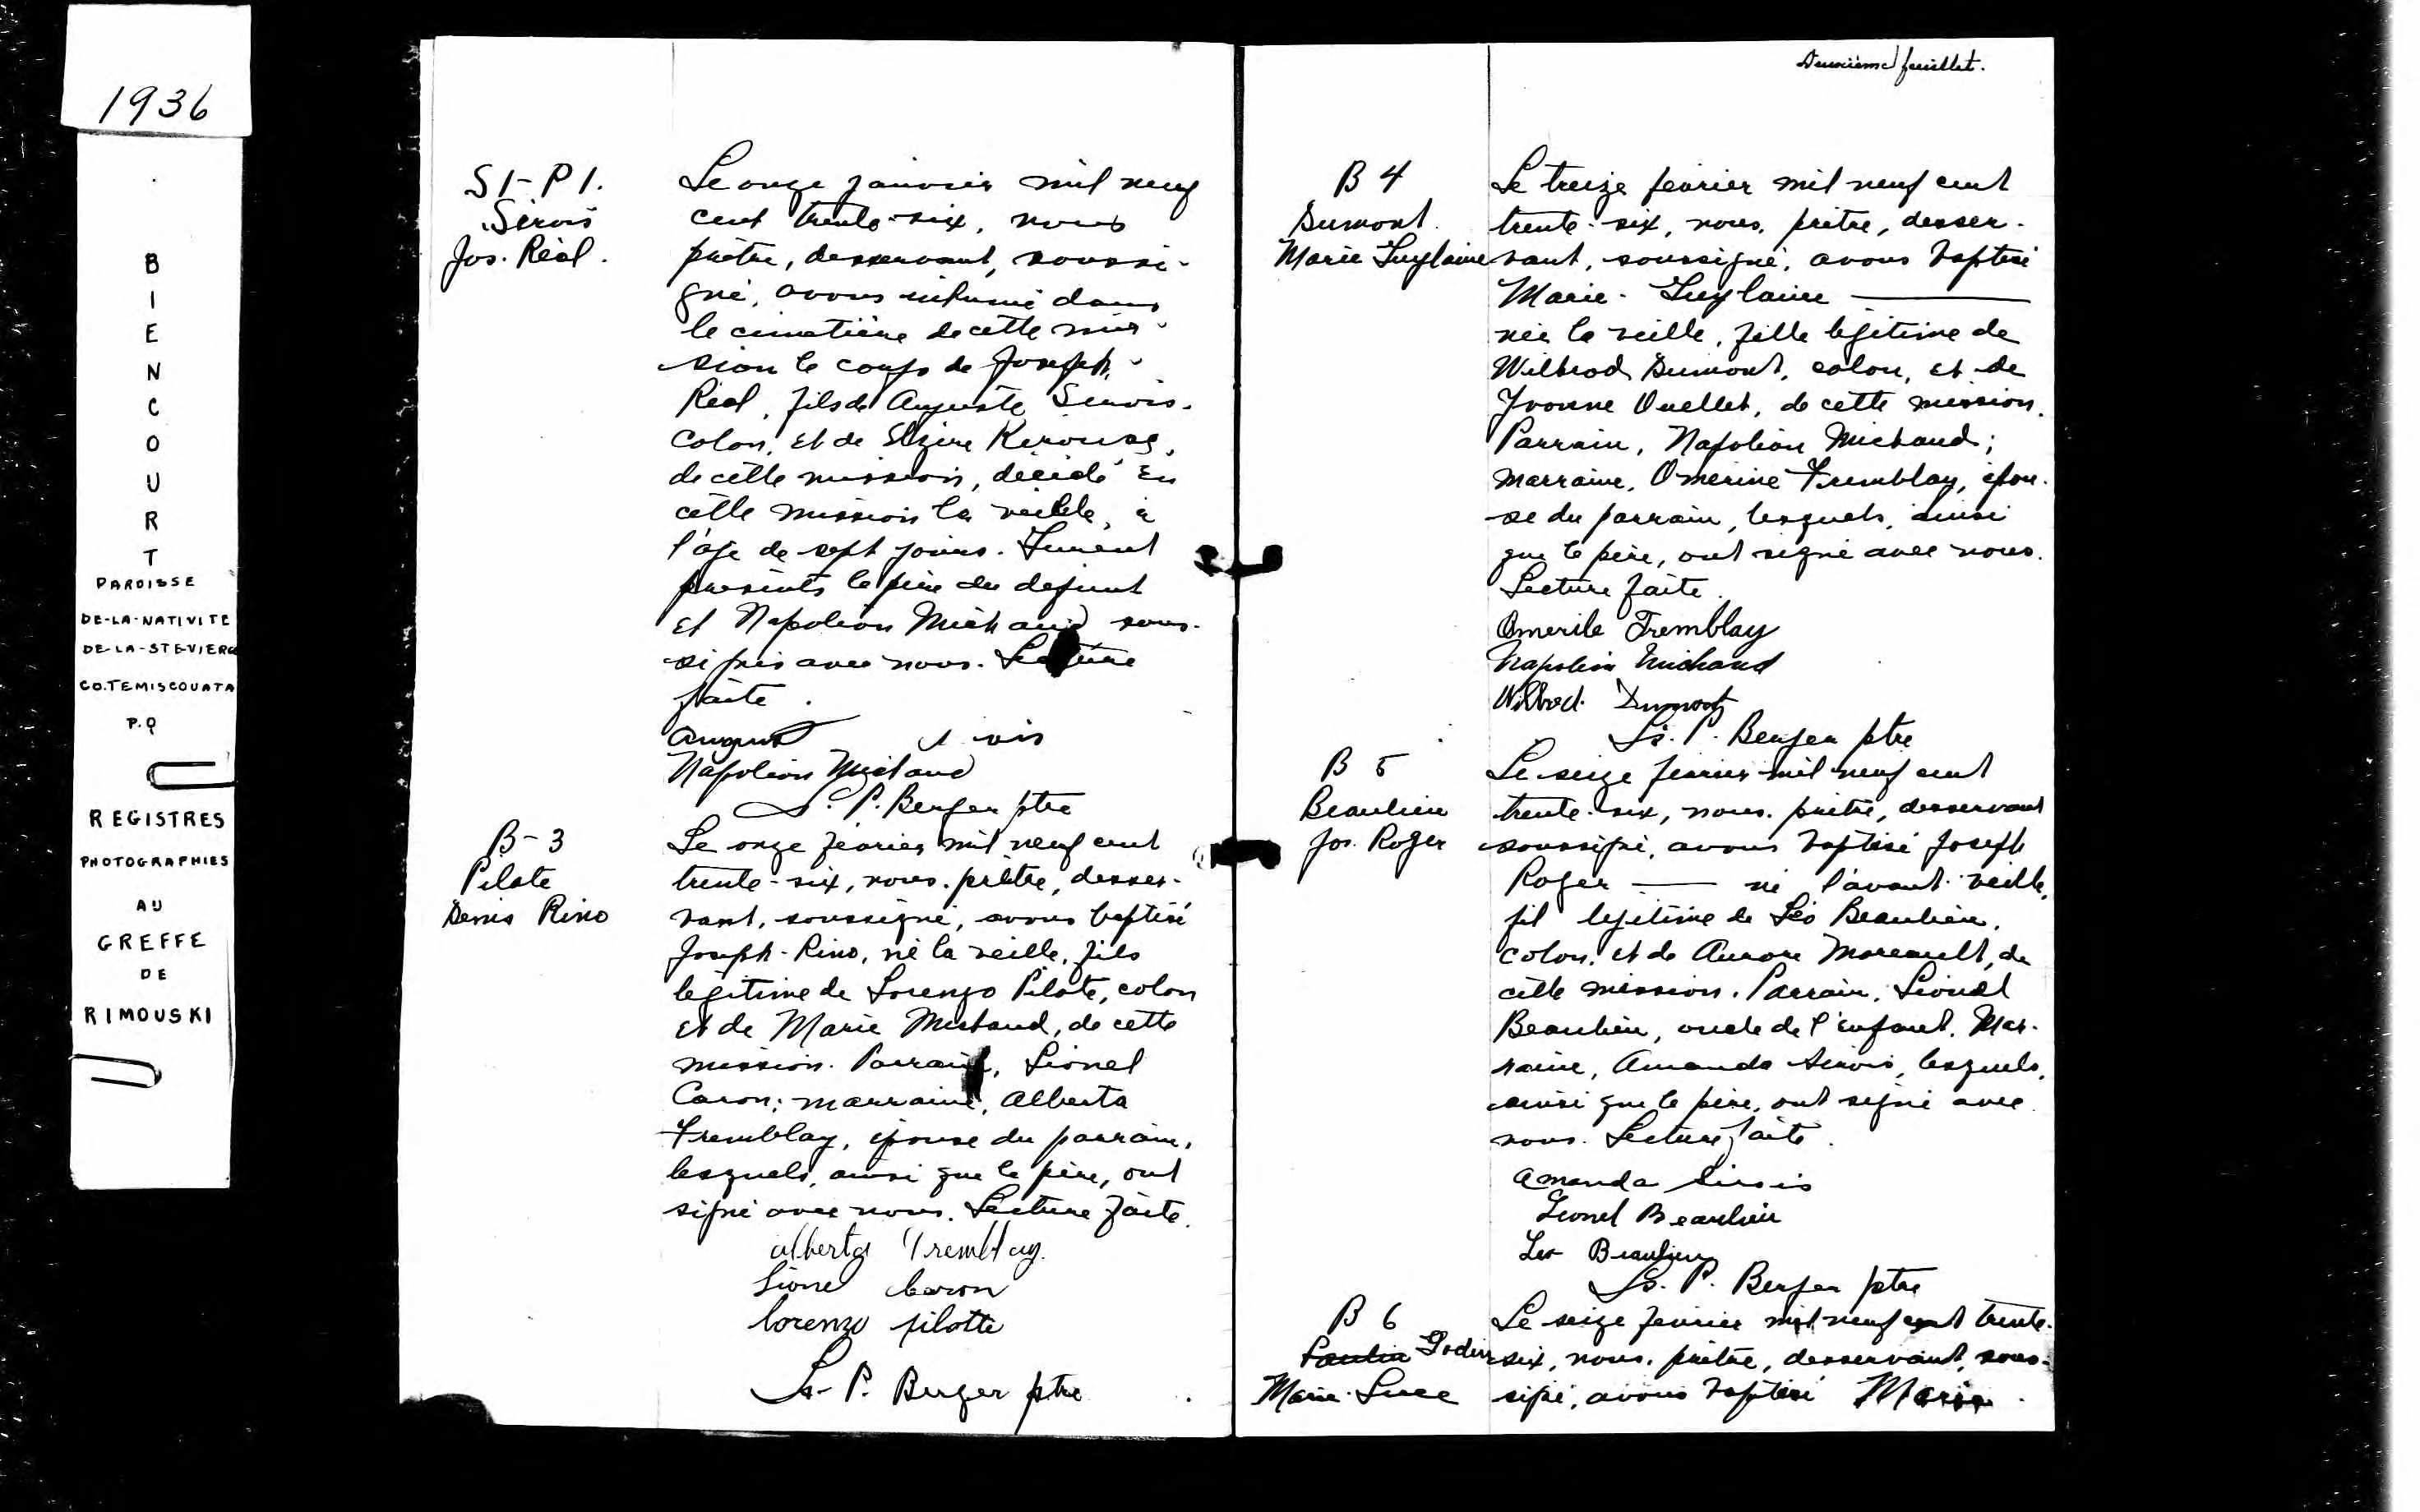 1936
BIENCOURT
PAROISSE
DE-LA-NATIVITE
DE-LA-STE-VIERGE
CO.TEMISCOUATA
P.Q
REGISTRES
PHOTOGRAPHIES
AU
GREFFE
DE
RIMOUSKI
S1-P1.
Sirois
Jos. Réal.
Le onze janvier mil neuf
cent trente-six, nous
prêtre, desservant, soussi-
gné, avons inhumé dans
le cimetière de cette mis-
sion le corps de Joseph-
Réal, fils de Auguste Sirois.
colon, et de Elzire Kirouac,
de cette mission, décédé en
cette mission la veille, à
l'âge de sept jours. Furent
présents le père du défunt
et Napoléon Michaud sous-
signés avec nous. Lecture
faite.
August
Napoléon Michaud
Ls. P. Berger ptre
B-3
Pilote
Denis Rino
Le onze février mil neuf cent
trente-six, nous. prêtre, desser-
vant, soussigné, avons baptisé
Joseph-Rino, né la veille, fils
légitime de Lorenzo Pilote, colon
et de Marie Michaud, de cette
mission. Parrain, Lionel
Caron; marraine, Alberta
Tremblay, épouse du parrain,
lesquels, ainsi que le père, ont
signé avec nous. Lecture faite.
alberta Tremblay.
Lionel Caron
Lorenzo pilotte
Ls-P. Berger ptre
Deuxième feuillet.
B 4
Dumont.
Marie Guylaine
Le treize février mil neuf cent
trente-six, nous, prêtre, desser-
vant, soussigné, avons baptisé
Marie-Guylaine
née la veille, fille légitime de
Wilbrod Dumont, colon, et de
Yvonne Ouellet, de cette mission.
Parrain, Napoléon Michaud;
marraine, Omérine Tremblay, épou-
se du parrain, lesquels, ainsi
que le père, ont signé avec nous.
Lecture faite.
Omerile Tremblay
Napoléon Michaud
Wilbrod. Dumont
Ls. P. Berger ptre
B 5
Beaulieu
Jos. Roger
Le seize février mil neuf cent
trente-six, nous. prêtre, desservant
soussigné, avons baptisé Joseph
Roger né l'avant-veille,
fil légitime de Léo Beaulieu,
colon, et de Aurore Moreault, de
cette mission. Parrain, Lionel
Beaulieu, oncle de l'enfant. Mar-
raine, Amanda Sirois, lesquels,
ainsi que le père, ont signé avec
nous. Lecture faite.
Amanda Sirois
Lionel Beaulieu
Léo Beaulieu
Ls. P. Berger ptre
B 6
Godin
Marie-Luce
Le seize février mil neuf cent trente-
six, nous. prêtre, desservant, sous-
signé, avons baptisé Marie